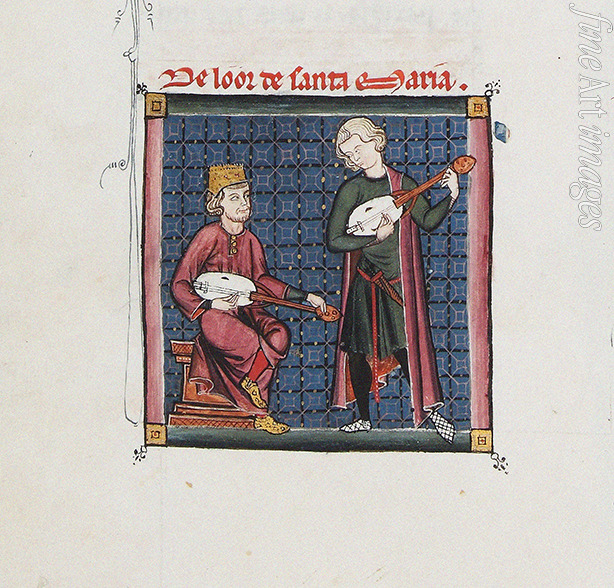 De loor de santa Maria.
fine Art images